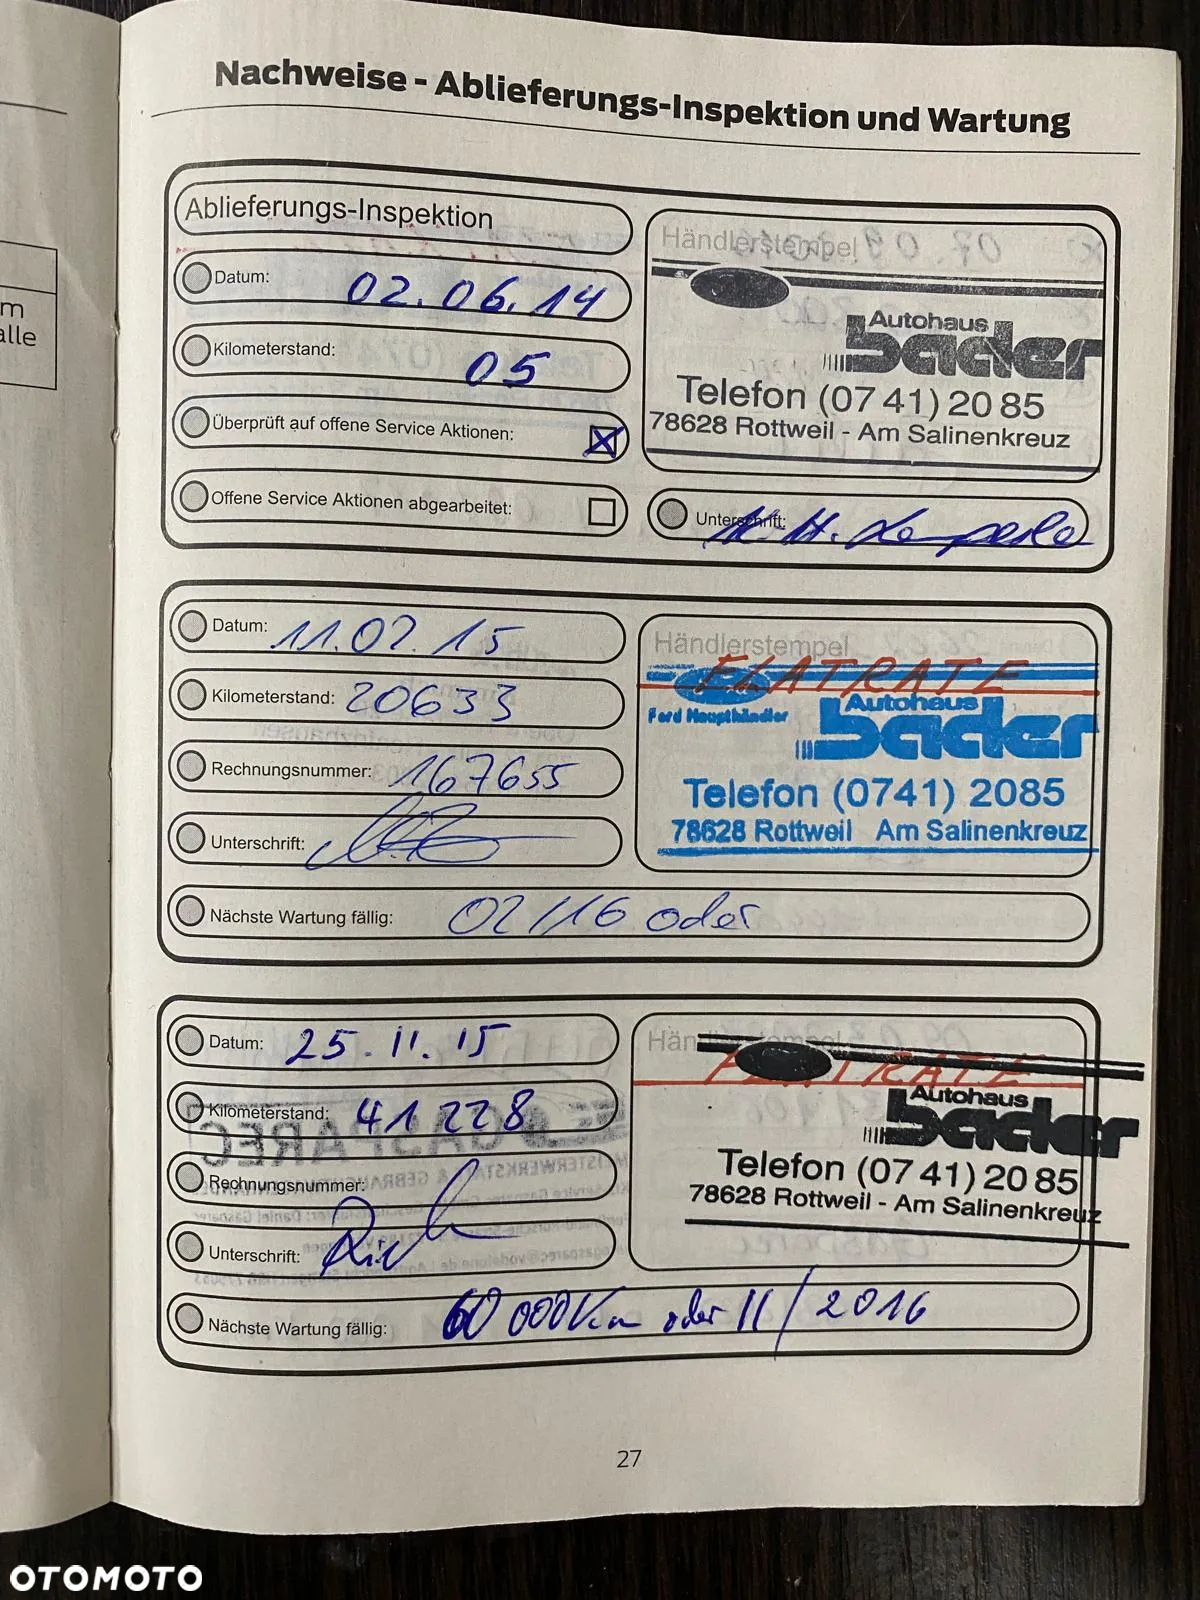 m
alle
Nachweise - Ablieferungs-Inspektion und Wartung
Ablieferungs-Inspektion
Datum: 02.06.14
Kilometerstand: 05
Überprüft auf offene Service Aktionen:
Offene Service Aktionen abgearbeitet:
Händlerstempel
Autohaus
bader
Telefon (07 41) 20 85
78628 Rottweil - Am Salinenkreuz
Unterschrift:
Datum: 11.02.15
Kilometerstand: 20633
Rechnungsnummer: 167655
Unterschrift:
Händlerstempel
FLATRATE
Ford Haupthändler
Autohaus
bader
Telefon (0741) 2085
78628 Rottweil Am Salinenkreuz
Nächste Wartung fällig: 02/16 oder
Datum: 25.11.15
Kilometerstand: 41228
Rechnungsnummer:
Unterschrift:
Händlerstempel
FLATRATE
Autohaus
bader
Telefon (07 41) 20 85
78628 Rottweil - Am Salinenkreuz
Nächste Wartung fällig: 60 000 Km oder 11/2016
27
OTOMOTO